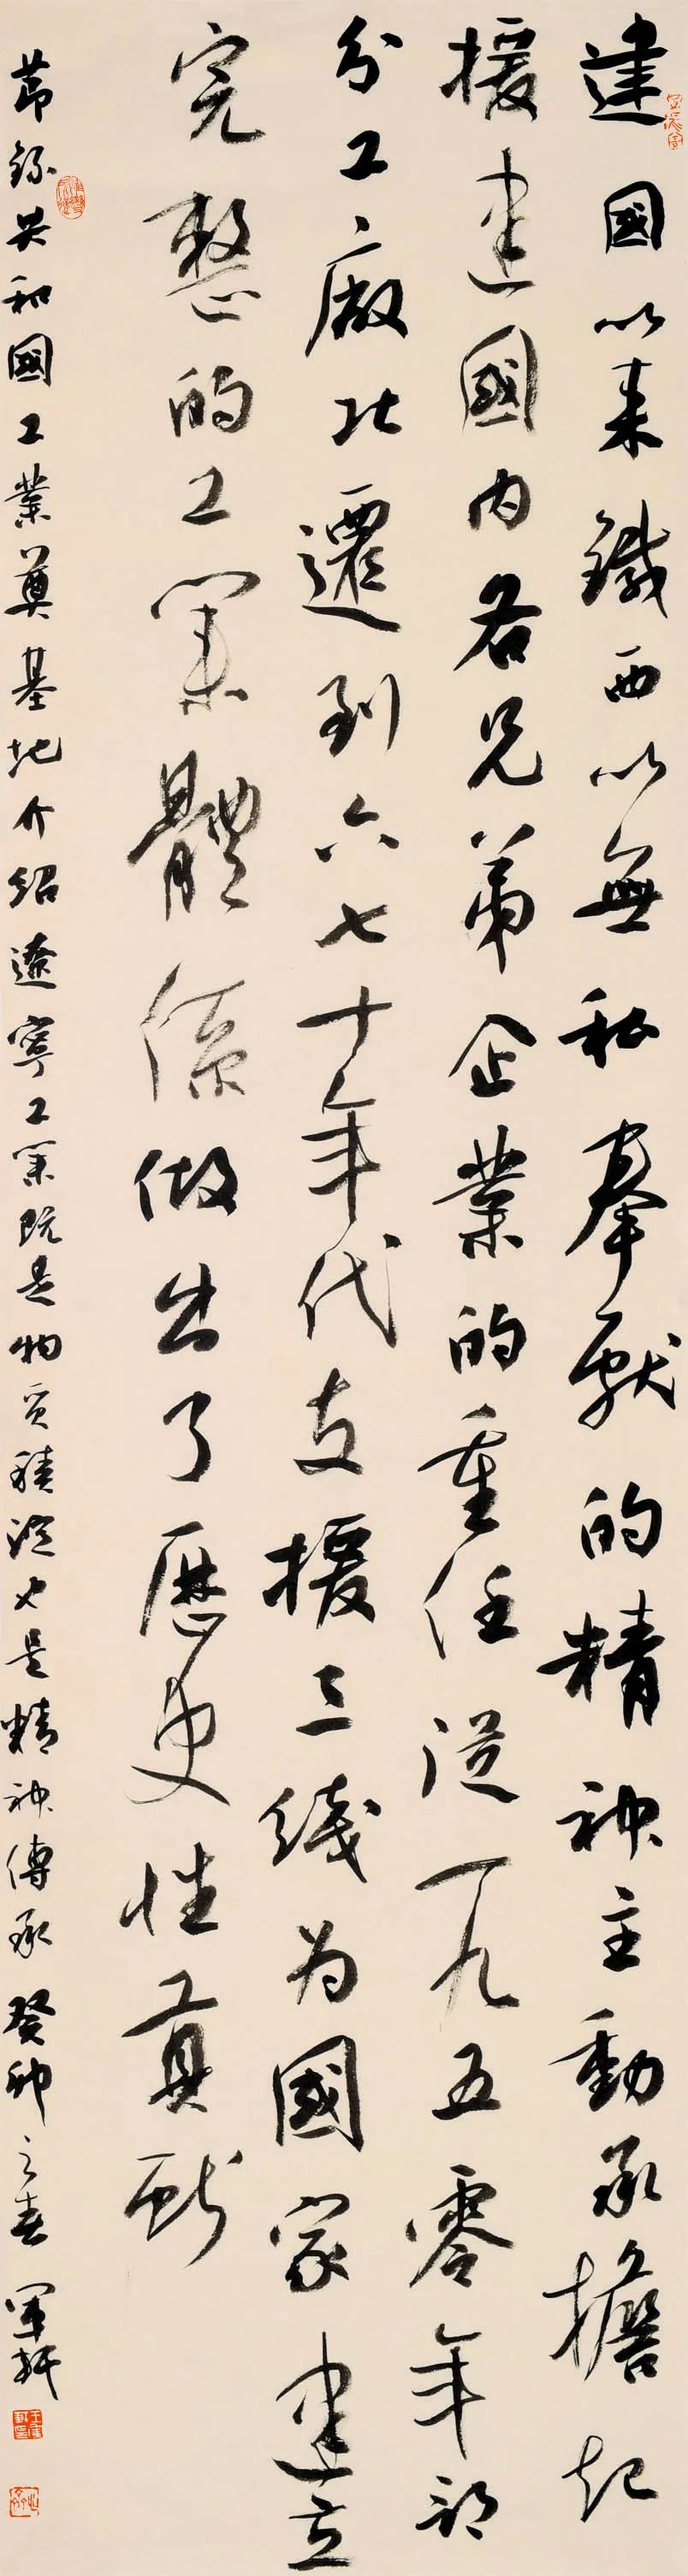 建國以来鐵西以無私奉獻的精神主動承擔起
援建國内各兄弟企業的重任從一九五零年部
分工廠北遷到六七十年代支援三綫为國家建立
完整的工業體係做出了歷史性貢献
節錄共和國工業奠基地介紹遼寧工業既是物质積淀也是精神傳承癸卯之春軍軒